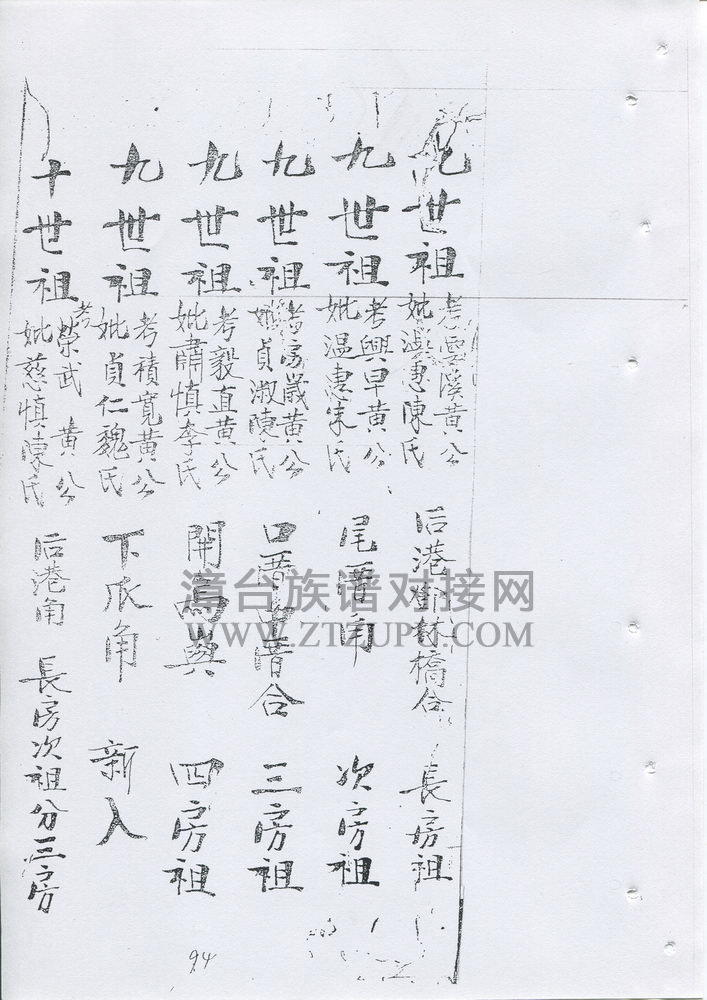 九世祖 考雲溪黃公 妣溫惠陳氏 后港 林橋仝 長房祖
九世祖 考興早黃公 妣溫惠宋氏 尾厝角 次房祖
九世祖 考房嵗黃公 妣貞淑陳氏 口厝 仝 三房祖
九世祖 考毅直黃公 妣 慎李氏 開 興 四房祖
九世祖 考積寬黃公 妣貞仁魏氏 下爪角 新入
十世祖 考榮武黃公 妣慈慎陳氏 后港角 長房次祖分三房
94
漳台族谱对接网
WWW.ZTZUPU.COM